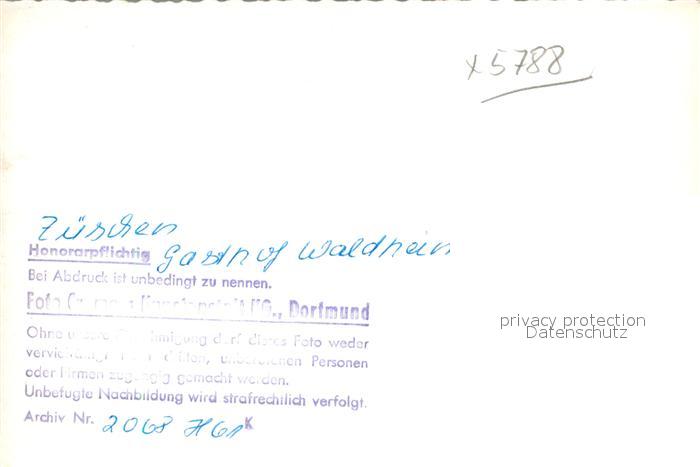 x 5788
Züschen
Gasthof Waldheim
Honorarpflichtig
Bei Abdruck ist unbedingt zu nennen.
Foto KG., Dortmund
Ohne unsere Genehmigung darf dieses Foto weder
vervielfältigt noch dritten, unberufenen Personen
oder Firmen zugängig gemacht werden.
Unbefugte Nachbildung wird strafrechtlich verfolgt.
Archiv Nr. 2068 H61 K
privacy protection
Datenschutz